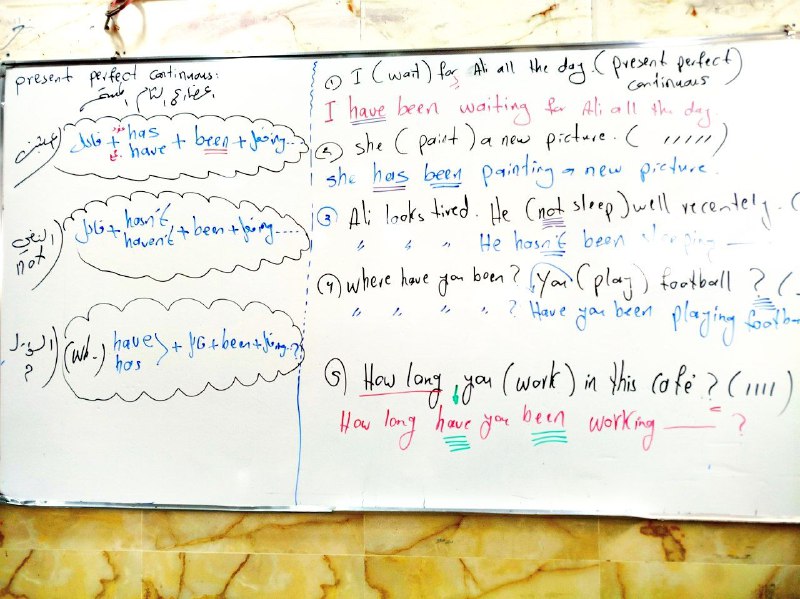 present perfect continuous:
المضارع التام المستمر
مثبت) فاعل + has
have + been + فعل ing...
مفرد
جمع
النفي
not) فاعل + hasn't
haven't + been + فعل ing....
السؤال
؟) (Wh-) have
has + فاعل + been + فعل ing..?
① I (wait) for Ali all the day. (present perfect continuous)
I have been waiting for Ali all the day
② she (paint) a new picture. ( ,,,,,)
she has been painting a new picture.
③ Ali looks tired. He (not sleep) well recentely. (
" " " He hasn't been sleeping ——
④ where have you been? You (play) football ? (
" " " " ? Have you been playing footba
⑤ How long you (work) in this café ? (ıııı)
How long have you been working —— ?